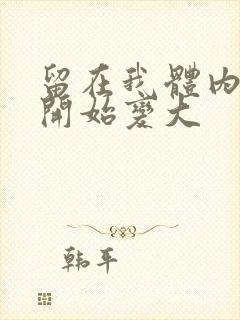 留在我體內
開始變大
韩平